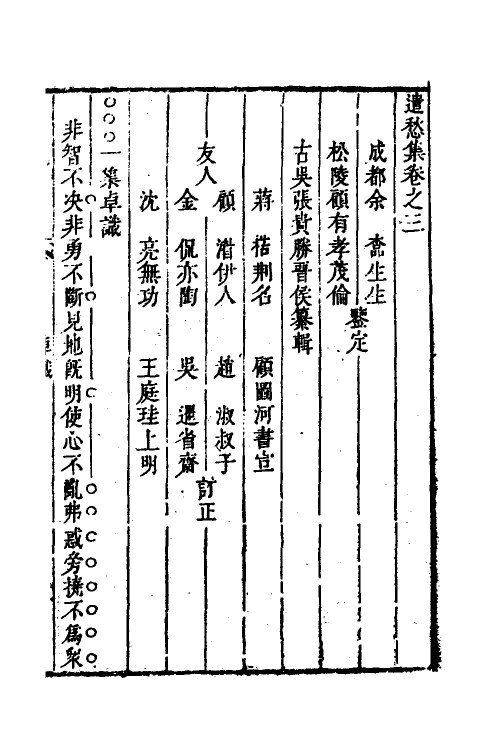 遣愁集卷之三
成都余 㷍生生
松陵顧有孝茂倫
鑒定
古吳張貴勝晉侯纂輯
蔣 楛荆名 顧圖河書宣
顧 湄伊人 趙 淑叔子
友人
訂正
金 侃亦陶 吳 暹省齋
沈 亮無功 王庭珪上明
一集卓識
非智不决非勇不斷見地旣明使心不亂弗惑旁撓不爲衆